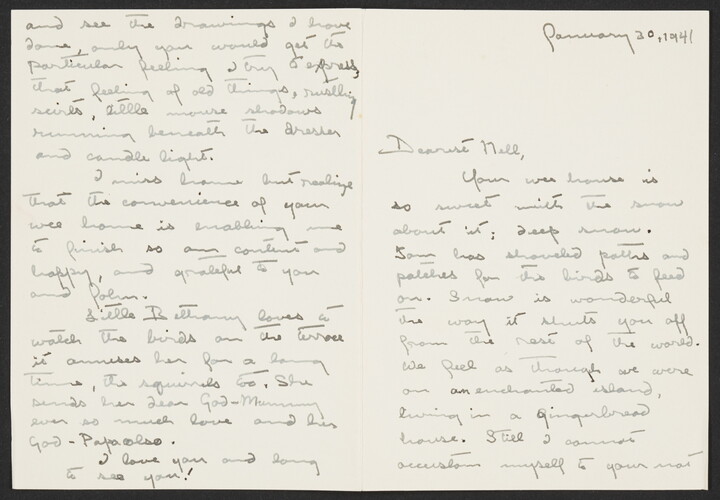 January 30, 1941
Dearest Nell,
Your wee house is
so sweet with the snow
about it; deep snow.
Sam has shoveled paths and
patches for the birds to feed
on. Snow is wonderful
the way it shuts you off
from the rest of the world.
We feel as though we were
on an enchanted island,
living in a gingerbread
house. Still I cannot
accustom myself to your not
and see the drawings I have
done, only you would get the
particular feeling I try to express,
that feeling of old things, rustling
scirts, little mouse shadows
running beneath the dresser
and candle light.
I miss home but realize
that the convenience of your
wee home is enabling me
to finish so am content and
happy, and grateful to you
and John.
Little Bethany loves to
watch the birds on the terrace
it amuses her for a long
time, the squirrels too. She
sends her dear God-Mummy
ever so much love and her
God-Papa also.
I love you and long
to see you!